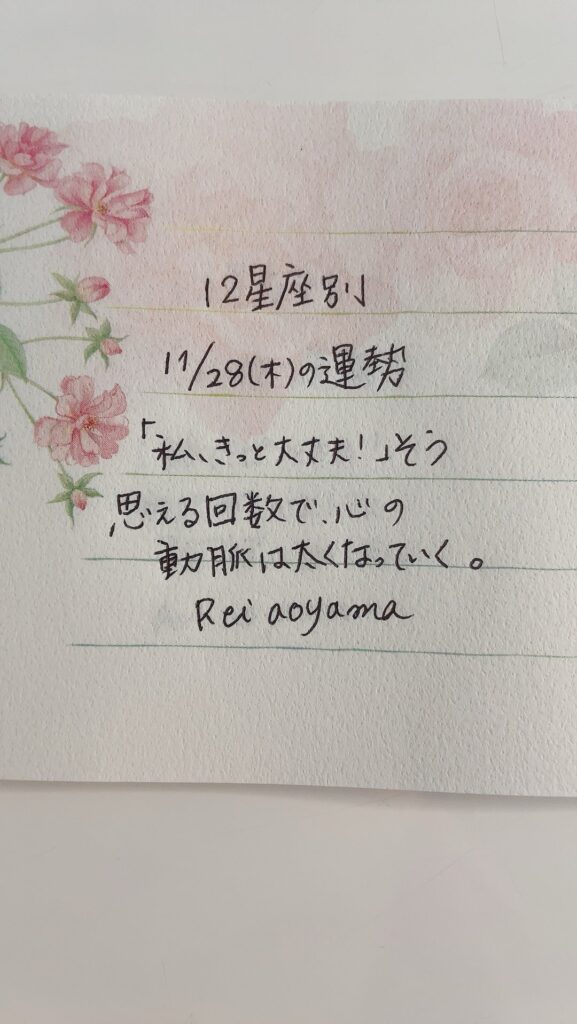 12星座別
11/28(木)の運勢
「私、きっと大丈夫!」そう
思える回数で、心の
動脈は太くなっていく。
Rei aoyama